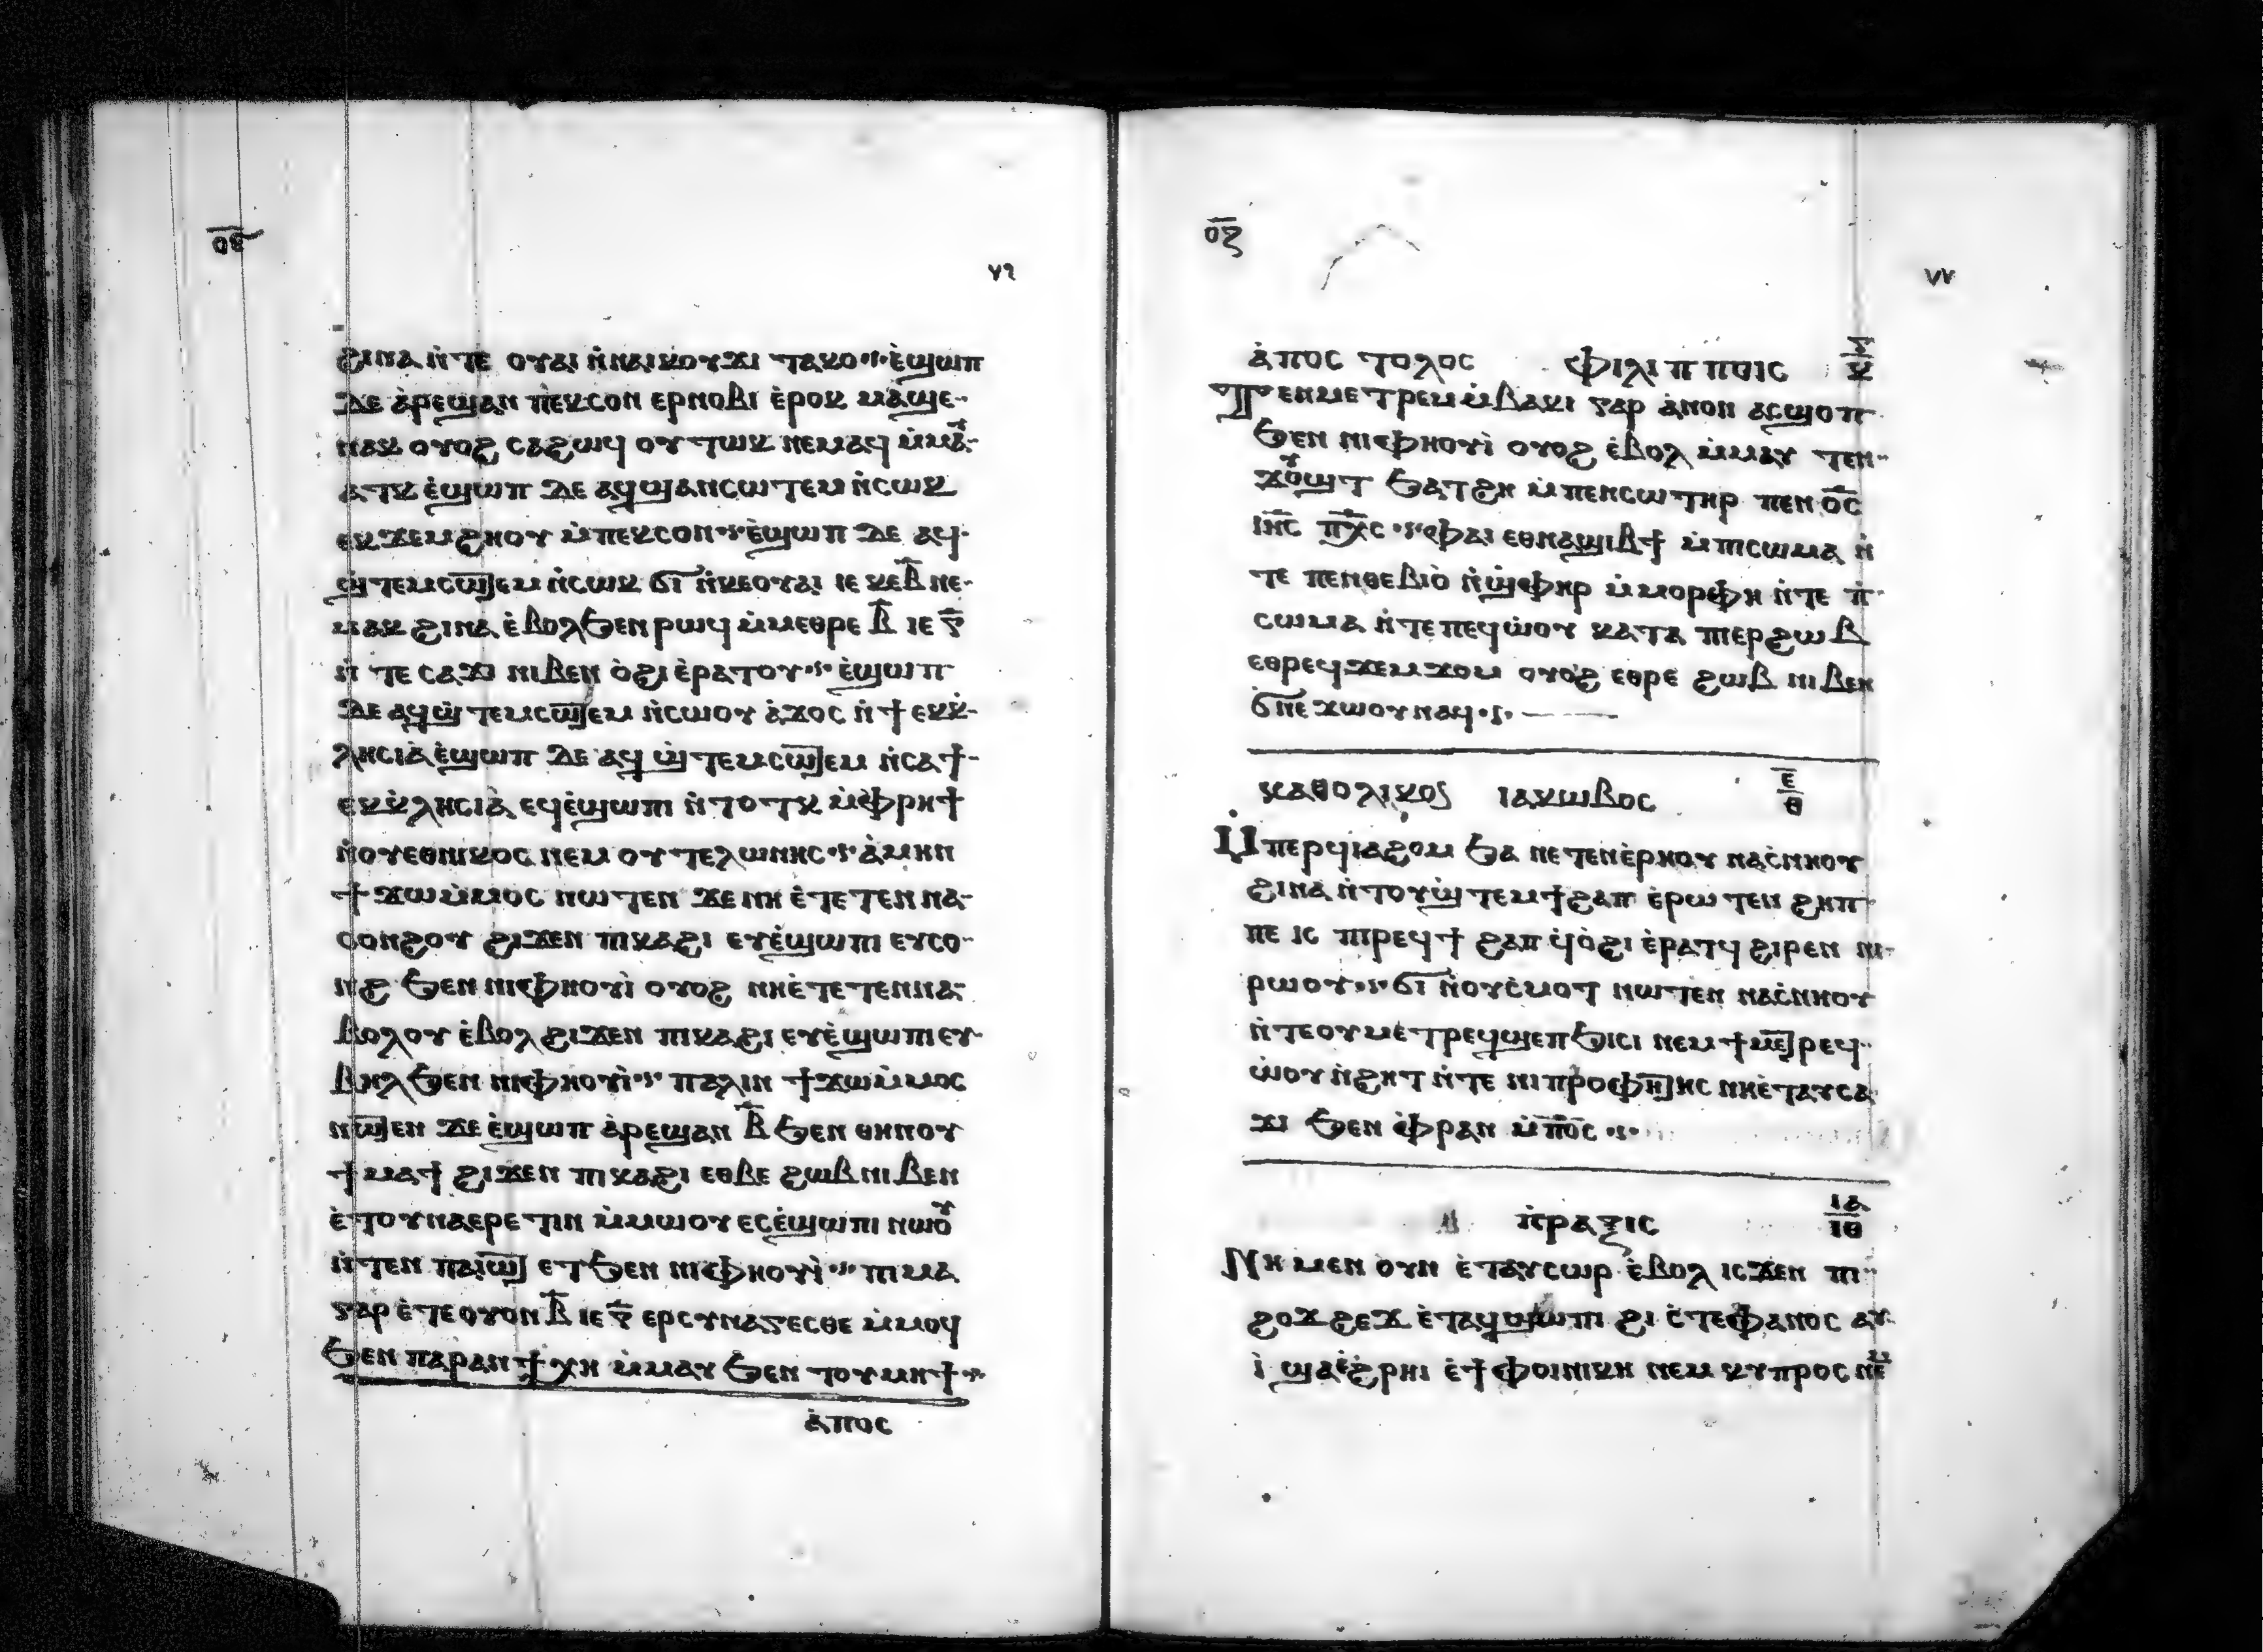 ⲟ̅ⲋ̅
٧٦
ϩⲓⲛⲁ ⲛ̀ⲧⲉ ⲟⲩⲁⲓ ⲛ̀ⲛⲁⲓⲕⲟⲩϫⲓ ⲧⲁⲕⲟ ⲉ̀ϣⲱⲡ
ⲇⲉ ⲁ̀ⲣⲉϣⲁⲛ ⲡⲉⲕⲥⲟⲛ ⲉⲣⲛⲟⲃⲓ ⲉ̀ⲣⲟⲕ ⲙⲁϣⲉ
ⲛⲁⲕ ⲟⲩⲟϩ ⲥⲁϩⲱϥ ⲟⲩⲧⲱⲕ ⲛⲉⲙⲁϥ ⲙ̀ⲙⲁ
ⲁⲧⲕ ⲉ̀ϣⲱⲡ ⲇⲉ ⲁϥϣⲁⲛⲥⲱⲧⲉⲙ ⲛ̀ⲥⲱⲕ
ⲉⲕϫⲉⲙϩⲏⲟⲩ ⲙ̀ⲡⲉⲕⲥⲟⲛ ⲉ̀ϣⲱⲡ ⲇⲉ ⲁϥ
ϣ̀ⲧⲉⲙⲥⲱⲧⲉⲙ ⲛ̀ⲥⲱⲕ ϭⲓ ⲛ̀ⲕⲉⲟⲩⲁⲓ ⲓⲉ ⲕⲉⲃ̅ ⲛⲉ
ⲙⲁⲕ ϩⲓⲛⲁ ⲉ̀ⲃⲟⲗϧⲉⲛ ⲣⲱϥ ⲙ̀ⲙⲉⲑⲣⲉ ⲃ̅ ⲓⲉ ⲅ̅
ⲛ̀ⲧⲉ ⲥⲁϫⲓ ⲛⲓⲃⲉⲛ ⲟ̀ϩⲓ ⲉ̀ⲣⲁⲧⲟⲩ ⲉ̀ϣⲱⲡ
ⲇⲉ ⲁϥϣ̀ⲧⲉⲙⲥⲱⲧⲉⲙ ⲛ̀ⲥⲱⲟⲩ ⲁ̀ϫⲟⲥ ⲛ̀ϯⲉⲕⲕ̀
ⲗⲏⲥⲓⲁ̀ ⲉ̀ϣⲱⲡ ⲇⲉ ⲁϥϣ̀ⲧⲉⲙⲥⲱⲧⲉⲙ ⲛ̀ⲥⲁϯ
ⲉⲕⲕ̀ⲗⲏⲥⲓⲁ̀ ⲉϥⲉ̀ϣⲱⲡⲓ ⲛ̀ⲧⲟⲧⲕ ⲙ̀ⲫⲣⲏϯ
ⲛ̀ⲟⲩⲉⲑⲛⲓⲕⲟⲥ ⲛⲉⲙ ⲟⲩⲧⲉⲗⲱⲛⲏⲥ ⲁ̀ⲙⲏⲛ
ϯϫⲱⲙ̀ⲙⲟⲥ ⲛⲱⲧⲉⲛ ϫⲉ ⲛⲏ ⲉ̀ⲧⲉⲧⲉⲛⲛⲁ
ⲥⲟⲛϩⲟⲩ ϩⲓϫⲉⲛ ⲡⲓⲕⲁϩⲓ ⲉⲩⲉ̀ϣⲱⲡⲓ ⲉⲩⲥⲟ
ⲛϩ ϧⲉⲛ ⲛⲓⲫⲏⲟⲩⲓ̀ ⲟⲩⲟϩ ⲛⲏⲉ̀ⲧⲉⲧⲉⲛⲛⲁ
ⲃⲟⲗⲟⲩ ⲉ̀ⲃⲟⲗ ϩⲓϫⲉⲛ ⲡⲓⲕⲁϩⲓ ⲉⲩⲉ̀ϣⲱⲡⲓ ⲉⲩ
ⲃⲏⲗ ϧⲉⲛ ⲛⲓⲫⲏⲟⲩⲓ̀ ⲡⲁⲗⲓⲛ ϯϫⲱⲙ̀ⲙⲟⲥ
ⲛⲱⲧⲉⲛ ϫⲉ ⲉ̀ϣⲱⲡ ⲁ̀ⲣⲉϣⲁⲛ ⲃ̅ ϧⲉⲛ ⲑⲏⲛⲟⲩ
ϯⲙⲁϯ ϩⲓϫⲉⲛ ⲡⲓⲕⲁϩⲓ ⲉⲑⲃⲉ ϩⲱⲃ ⲛⲓⲃⲉⲛ
ⲉ̀ⲧⲟⲩⲛⲁⲉⲣⲉⲧⲓⲛ ⲙ̀ⲙⲱⲟⲩ ⲉⲥⲉ̀ϣⲱⲡⲓ ⲛⲱⲟⲩ
ⲛ̀ⲧⲉⲛ ⲡⲁⲓⲱⲧ ⲉⲧϧⲉⲛ ⲛⲓⲫⲏⲟⲩⲓ̀ ⲡⲓⲙⲁ
ⲅⲁⲣ ⲉ̀ⲧⲉⲟⲩⲟⲛ ⲃ̅ ⲓⲉ ⲅ̅ ⲉⲣⲥⲩⲛⲁⲅⲉⲥⲑⲉ ⲙ̀ⲙⲟϥ
ϧⲉⲛ ⲡⲁⲣⲁⲛ ϯⲭⲏ ⲙ̀ⲙⲁⲩ ϧⲉⲛ ⲧⲟⲩⲙⲏϯ
ⲁ̀ⲡⲟⲥ
ⲟ̅ⲍ̅
٧٧
ⲁ̀ⲡⲟⲥⲧⲟⲗⲟⲥ ⲫⲓⲗⲓⲡⲡⲟⲓⲥ ⲅ̅ ⲕ
Ⲡⲉⲛⲙⲉⲧⲣⲉⲙⲙ̀ⲃⲁⲕⲓ ⲅⲁⲣ ⲁ̀ⲛⲟⲛ ⲁⲥϣⲟⲡ
ϧⲉⲛ ⲛⲓⲫⲏⲟⲩⲓ̀ ⲟⲩⲟϩ ⲉ̀ⲃⲟⲗ ⲙ̀ⲙⲁⲩ ⲧⲉⲛ
ϫⲟⲩϣⲧ ϧⲁⲧϩⲏ ⲙ̀ⲡⲉⲛⲥⲱⲧⲏⲣ ⲡⲉⲛⲟ̅ⲥ̅
ⲓⲏ̅ⲥ̅ ⲡⲭ̅ⲥ̅ ⲫⲁⲓ ⲉⲑⲛⲁϣⲓⲃϯ ⲙ̀ⲡⲓⲥⲱⲙⲁ ⲛ̀
ⲧⲉ ⲡⲉⲛⲑⲉⲃⲓⲟ̀ ⲛ̀ϣ̀ⲫⲏⲣ ⲙ̀ⲙⲟⲣⲫⲏ ⲛ̀ⲧⲉ ⲡ̀
ⲥⲱⲙⲁ ⲛ̀ⲧⲉ ⲡⲉϥⲱ̀ⲟⲩ ⲕⲁⲧⲁ ⲡⲓⲉⲣϩⲱⲃ
ⲉⲑⲣⲉϥϫⲉⲙϫⲟⲙ ⲟⲩⲟϩ ⲉⲑⲣⲉ ϩⲱⲃ ⲛⲓⲃⲉⲛ
ϭⲛⲉϫⲱⲟⲩ ⲛⲁϥ
ⲕⲁⲑⲟⲗⲓⲕⲟⲥ ⲓⲁⲕⲱⲃⲟⲥ ⲉ̅ ⲑ
Ⲙ̀ⲡⲉⲣϥⲓⲁϩⲟⲙ ϧⲁ ⲛⲉⲧⲉⲛⲉ̀ⲣⲏⲟⲩ ⲛⲁⲥ̀ⲛⲏⲟⲩ
ϩⲓⲛⲁ ⲛ̀ⲧⲟⲩϣ̀ⲧⲉⲙϯϩⲁⲡ ⲉ̀ⲣⲱⲧⲉⲛ ϩⲏⲡ
ⲡⲉ ⲓⲥ ⲡⲓⲣⲉϥϯϩⲁⲡ ϥ̀ⲟ̀ϩⲓ ⲉ̀ⲣⲁⲧϥ ϩⲓⲣⲉⲛ ⲛⲓ
ⲣⲱⲟⲩ ϭⲓ ⲛ̀ⲟⲩⲥ̀ⲙⲟⲧ ⲛⲱⲧⲉⲛ ⲛⲁⲥ̀ⲛⲏⲟⲩ
ⲛ̀ⲧⲉⲟⲩⲙⲉⲧⲣⲉϥϣⲉⲡϧⲓⲥⲓ ⲛⲉⲙ ϯⲙⲉⲧⲣⲉϥ
ⲱ̀ⲟⲩⲛ̀ϩⲏⲧ ⲛ̀ⲧⲉ ⲛⲓⲡⲣⲟⲫⲏⲧⲏⲥ ⲛⲏⲉ̀ⲧⲁⲩⲥⲁ
ϫⲓ ϧⲉⲛ ⲫ̀ⲣⲁⲛ ⲙ̀ⲡⲟ̅ⲥ̅
ⲡ̀ⲣⲁⲝⲓⲥ ⲓ̅ⲁ̅ ⲓⲑ
Ⲛⲏ ⲙⲉⲛ ⲟⲩⲛ ⲉ̀ⲧⲁⲩⲥⲱⲣ ⲉ̀ⲃⲟⲗ ⲓⲥϫⲉⲛ ⲡⲓ
ϩⲟϫϩⲉϫ ⲉ̀ⲧⲁϥϣⲱⲡⲓ ϩⲓ ⲥ̀ⲧⲉⲫⲁⲛⲟⲥ ⲁⲩ
ⲓ̀ ϣⲁⲉ̀ϩ̀ⲣⲏⲓ ⲉ̀ϯⲫⲟⲓⲛⲓⲕⲏ ⲛⲉⲙ ⲕⲩⲡⲣⲟⲥ ⲛⲉⲙ